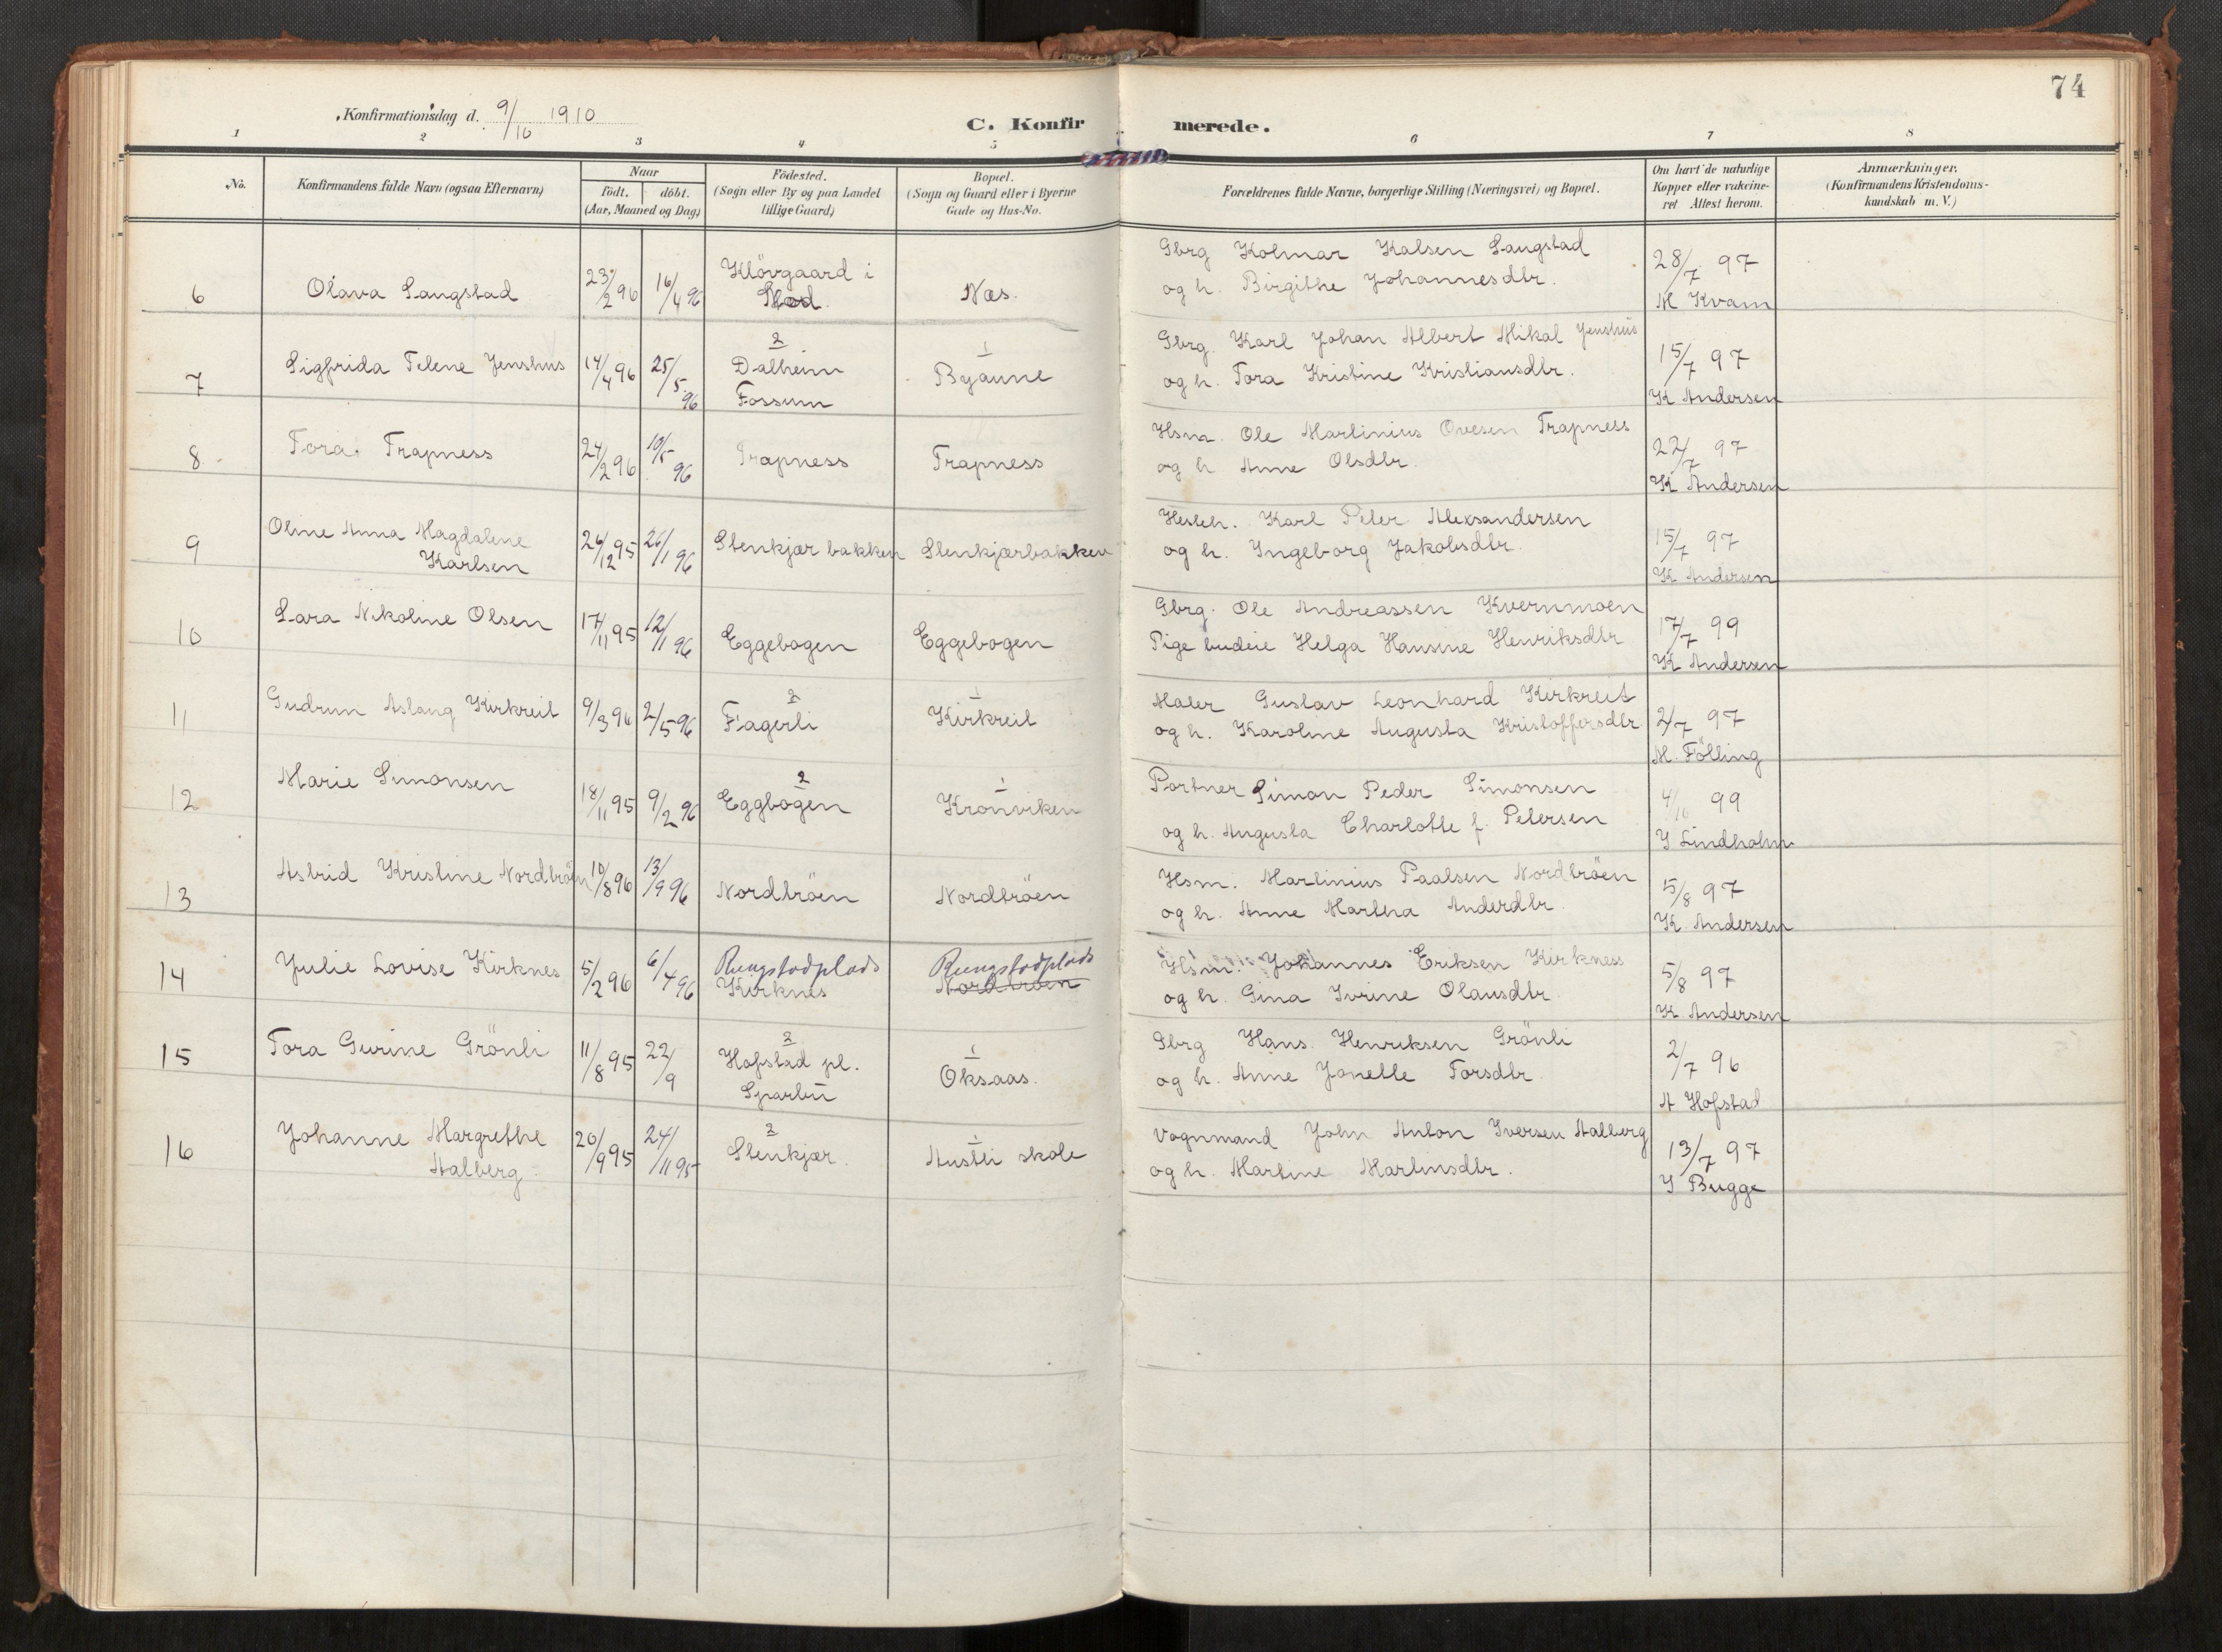 74
Konfirmationsdag d. 9/10 1910
C. Konfirmerede.
1 2 3 4 5 6 7 8
No.
Konfirmandens fulde Navn (ogsaa Efternavn)
Naar
födt. döbt.
(Aar, Maaned og Dag)
Födested.
(Sogn eller By og paa Landet
tillige Gaard)
Bopæl.
(Sogn og Gaard eller i Byerne
Gade og Hus-No.
Forældrenes fulde Navne, borgerlige Stilling (Næringsvei) og Bopæl.
Om havt de naturlige
Kopper eller vakcine-
ret Attest herom.
Anmærkninger.
(Konfirmandens Kristendoms-
kundskab m. V.)
6 Olava Langstad 23/2 96 16/4 96 Klövgaard i
Stod. Næs.
Gbrg Kolmar Kalsen Langstad
og h. Birgithe Johannesdtr.
28/7 97
M Kvam
7 Sigfrida Telene Jenshus 14/4 96 25/5 96 2
Dalheim
Fossum
1
Byaune
Gbrg. Karl Johan Albert Mikal Jenshus
og h. Tora Kristine Kristiansdtr.
15/7 97
K Andersen
8 Tora Trapness 24/2 96 10/5 96 Trapness Trapness
Hsm. Ole Martinius Ovesen Trapness
og h Anne Olsdtr.
22/7 97
K Andersen
9 Oline Anna Magdalene
Karlsen
26/12 95 26/1 96 Stenkjær bakken Stenkjærbakken
Karl Peter Alexsandersen
og h. Ingeborg Jakobsdtr.
15/7 97
K Andersen
10 Lara Nikoline Olsen 17/11 95 12/1 96 Eggebogen Eggebogen
Gbrg. Ole Andreassen Kvernmoen
Pige budeie Helga Hansine Henriksdtr
17/7 99
K Andersen
11 Gudrun Aslaug Kirkreit 9/3 96 2/5 96 2
Fagerli
1
Kirkreit
Maler Gustav Leonhard Kirkreit
og h. Karoline Augusta Kristoffersdtr
2/7 97
M. Fölling
12 Marie Simonsen 18/11 95 9/2 96 2
Eggbogen
1
Kronviken
Portner Simon Peder Simonsen
og h. Augusta Charlotte f. Petersen
4/10 99
I Lindholm
13 Astrid Kristine Nordtröen 10/8 96 13/9 96 Nordtröen Nordtröen
Hsm. Martinius Paalsen Nordtröen
og h. Anne Martha Anderdtr.
5/8 97
K. Andersen
14 Julie Lovise Kirknes 5/2 96 6/4 96 Rungstadplads
Kirknes
Rungstadplads
Nordtröen
Hsm. Johannes Eriksen Kirkness
og h. Gina Ivrine Olausdtr.
5/8 97
K. Andersen
15 Tora Gurine Grönli 11/8 95 22/9 2
Hofstad pl.
Sparbu
1
Oksaas.
Gbrg Hans Henriksen Grönli
og h. Anne Jonette Torsdtr.
2/7 96
A Hofstad
16 Johanne Margrethe
Aalberg
20/9 95 24/11 95 2
Stenkjær.
1
Austli skole
Vognmand John Anton Iversen Aalberg
og h. Martine Martinsdtr.
13/7 97
I Bugge